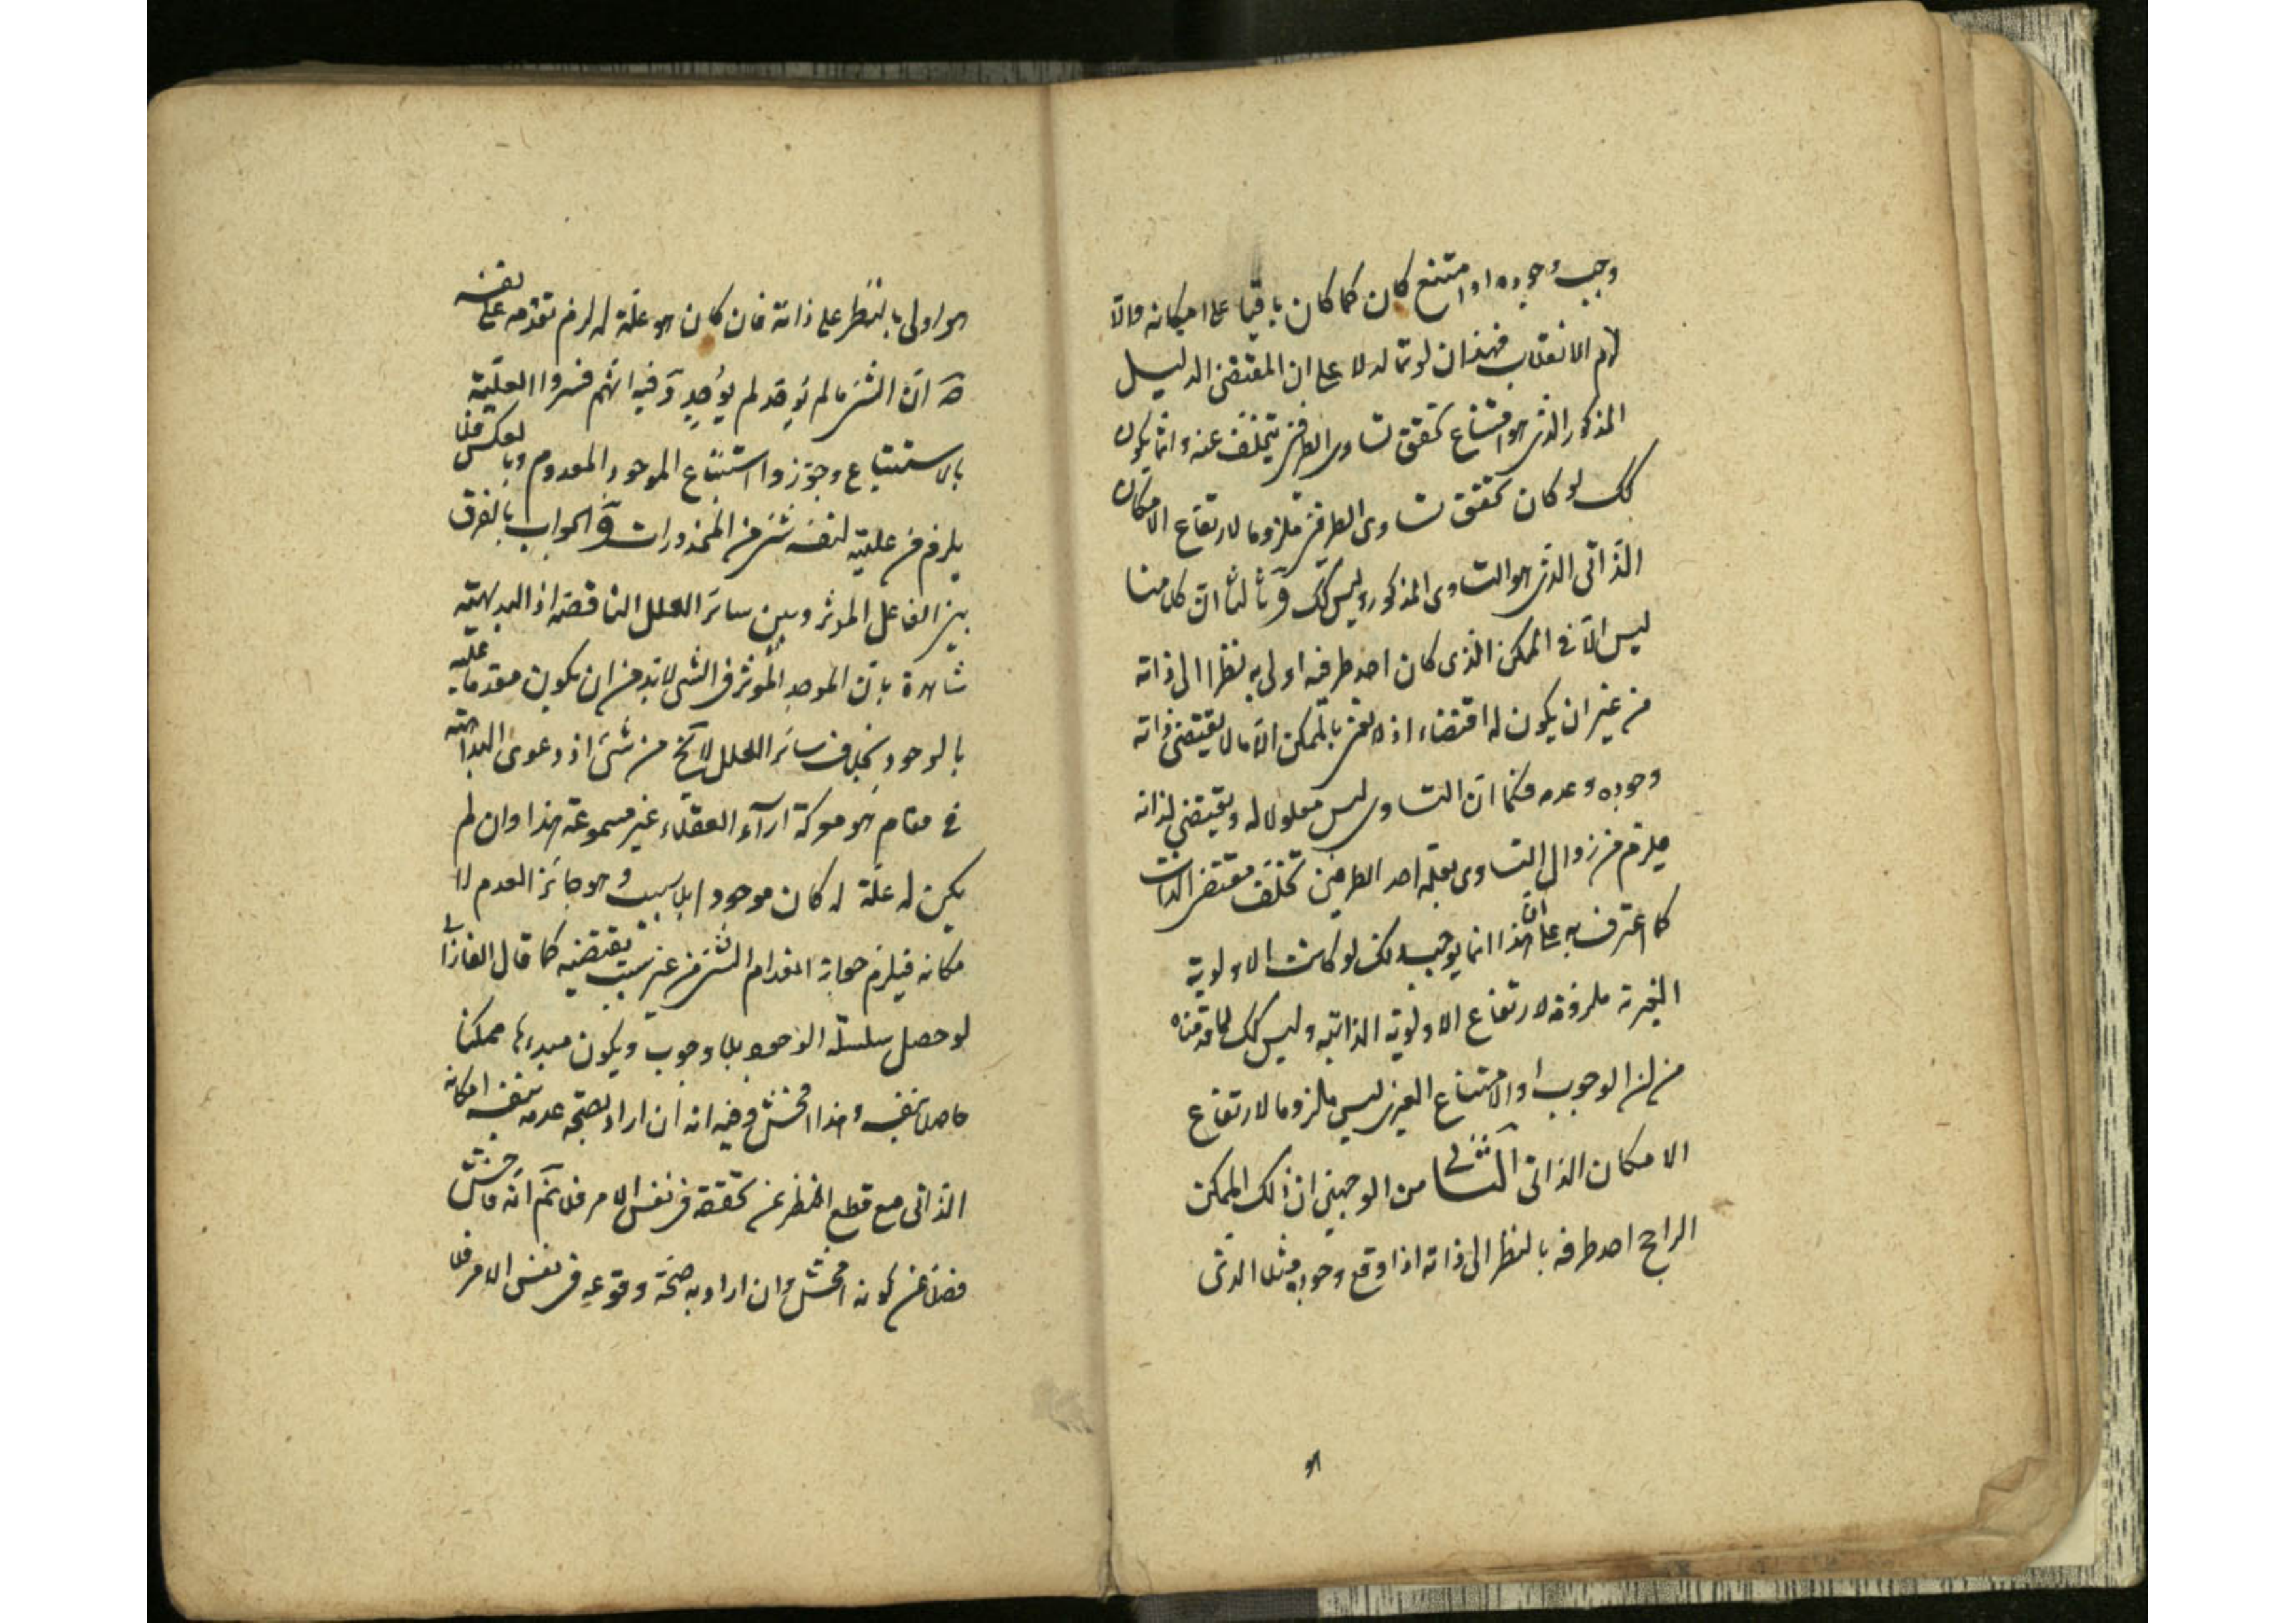 وجب وجوده او امتنع كان كما كان باقيا على امكانه والّا
لزم الانقلاب فهذان لو تما لدلا على ان المقتضى الدليل
المذكور الذى هو امتناع تحقق تساوى الطرفين يتخلف عنه وانما يكون
كك لو كان تحقق تساوى الطرفين ملزوما لارتفاع الامكان
الذاتى الذى هو التساوى المذكور وليس كك وثالثا انّ كلامنا
ليس الّا فى الممكن الذى كان احد طرفيه اولى به نظرا الى ذاته
من غير ان يكون له اقتضاء اذ لا نعنى بالممكن الّا ما لا يقتضى ذاته
وجوده وعدمه فكما انّ التساوى ليس معلولا له ويقتضى لذاته
فيلزم من زوال التساوى بعلية احد الطرفين تخلف مقتضى الذات
كما اعترف به على انّ هذا انما يوجب ذلك لو كانت الاولوية
الغيرية ملزومة لارتفاع الاولوية الذاتية وليس كك لما قدمناه
من ان الوجوب او الامتناع الغيرى ليس ملزوما لارتفاع
الامكان الذاتى الثانى من الوجهين ان ذلك الممكن
الراجح احد طرفيه بالنظر الى ذاته اذا وقع وجوده مثلا الذى
هو
هو اولى بالنظر على ذاته فان كان هو علّة له لزم تقدمه على نفسه
انّ الشئ ما لم يوجد لم يوجِد وفيه انهم فسروا العلّية
بالاستتباع وجوّزوا استتباع الموجود المعدوم وبالعكس فلا
يلزم من عليته لنفسه شئ من المحذورات والجواب بالفرق
بين الفاعل المؤثر وبين سائر العلل الناقصة اذ البديهية
شاهدة بانّ الموجد المؤثر فى الشئ لا بد من ان يكون متقدما عليه
بالوجود بخلاف سائر العلل لا يخ من شئ اذ دعوى البداهة
فى مقام هو معركة آراء العقلاء غير مسموعة هذا وان لم
يكن له علّة له كان موجودا بلا سبب وهو جائز العدم لا
مكانه فيلزم جواز انعدام الشئ من غير سبب يقتضيه كما قال الفارابى
لو حصل سلسلة الوجود بلا وجوب ويكون مبدءها ممكنا
حاصلا بنفسه وهذا افحش وفيه انه ان اراد بصحة عدمه بنفسه امكانه
الذاتى مع قطع النظر عن تحققه فى نفس الامر فلا نم انّه فاحش
فضلا عن كونه افحش وان اراد به صحّة وقوعه فى نفس الامر فلا